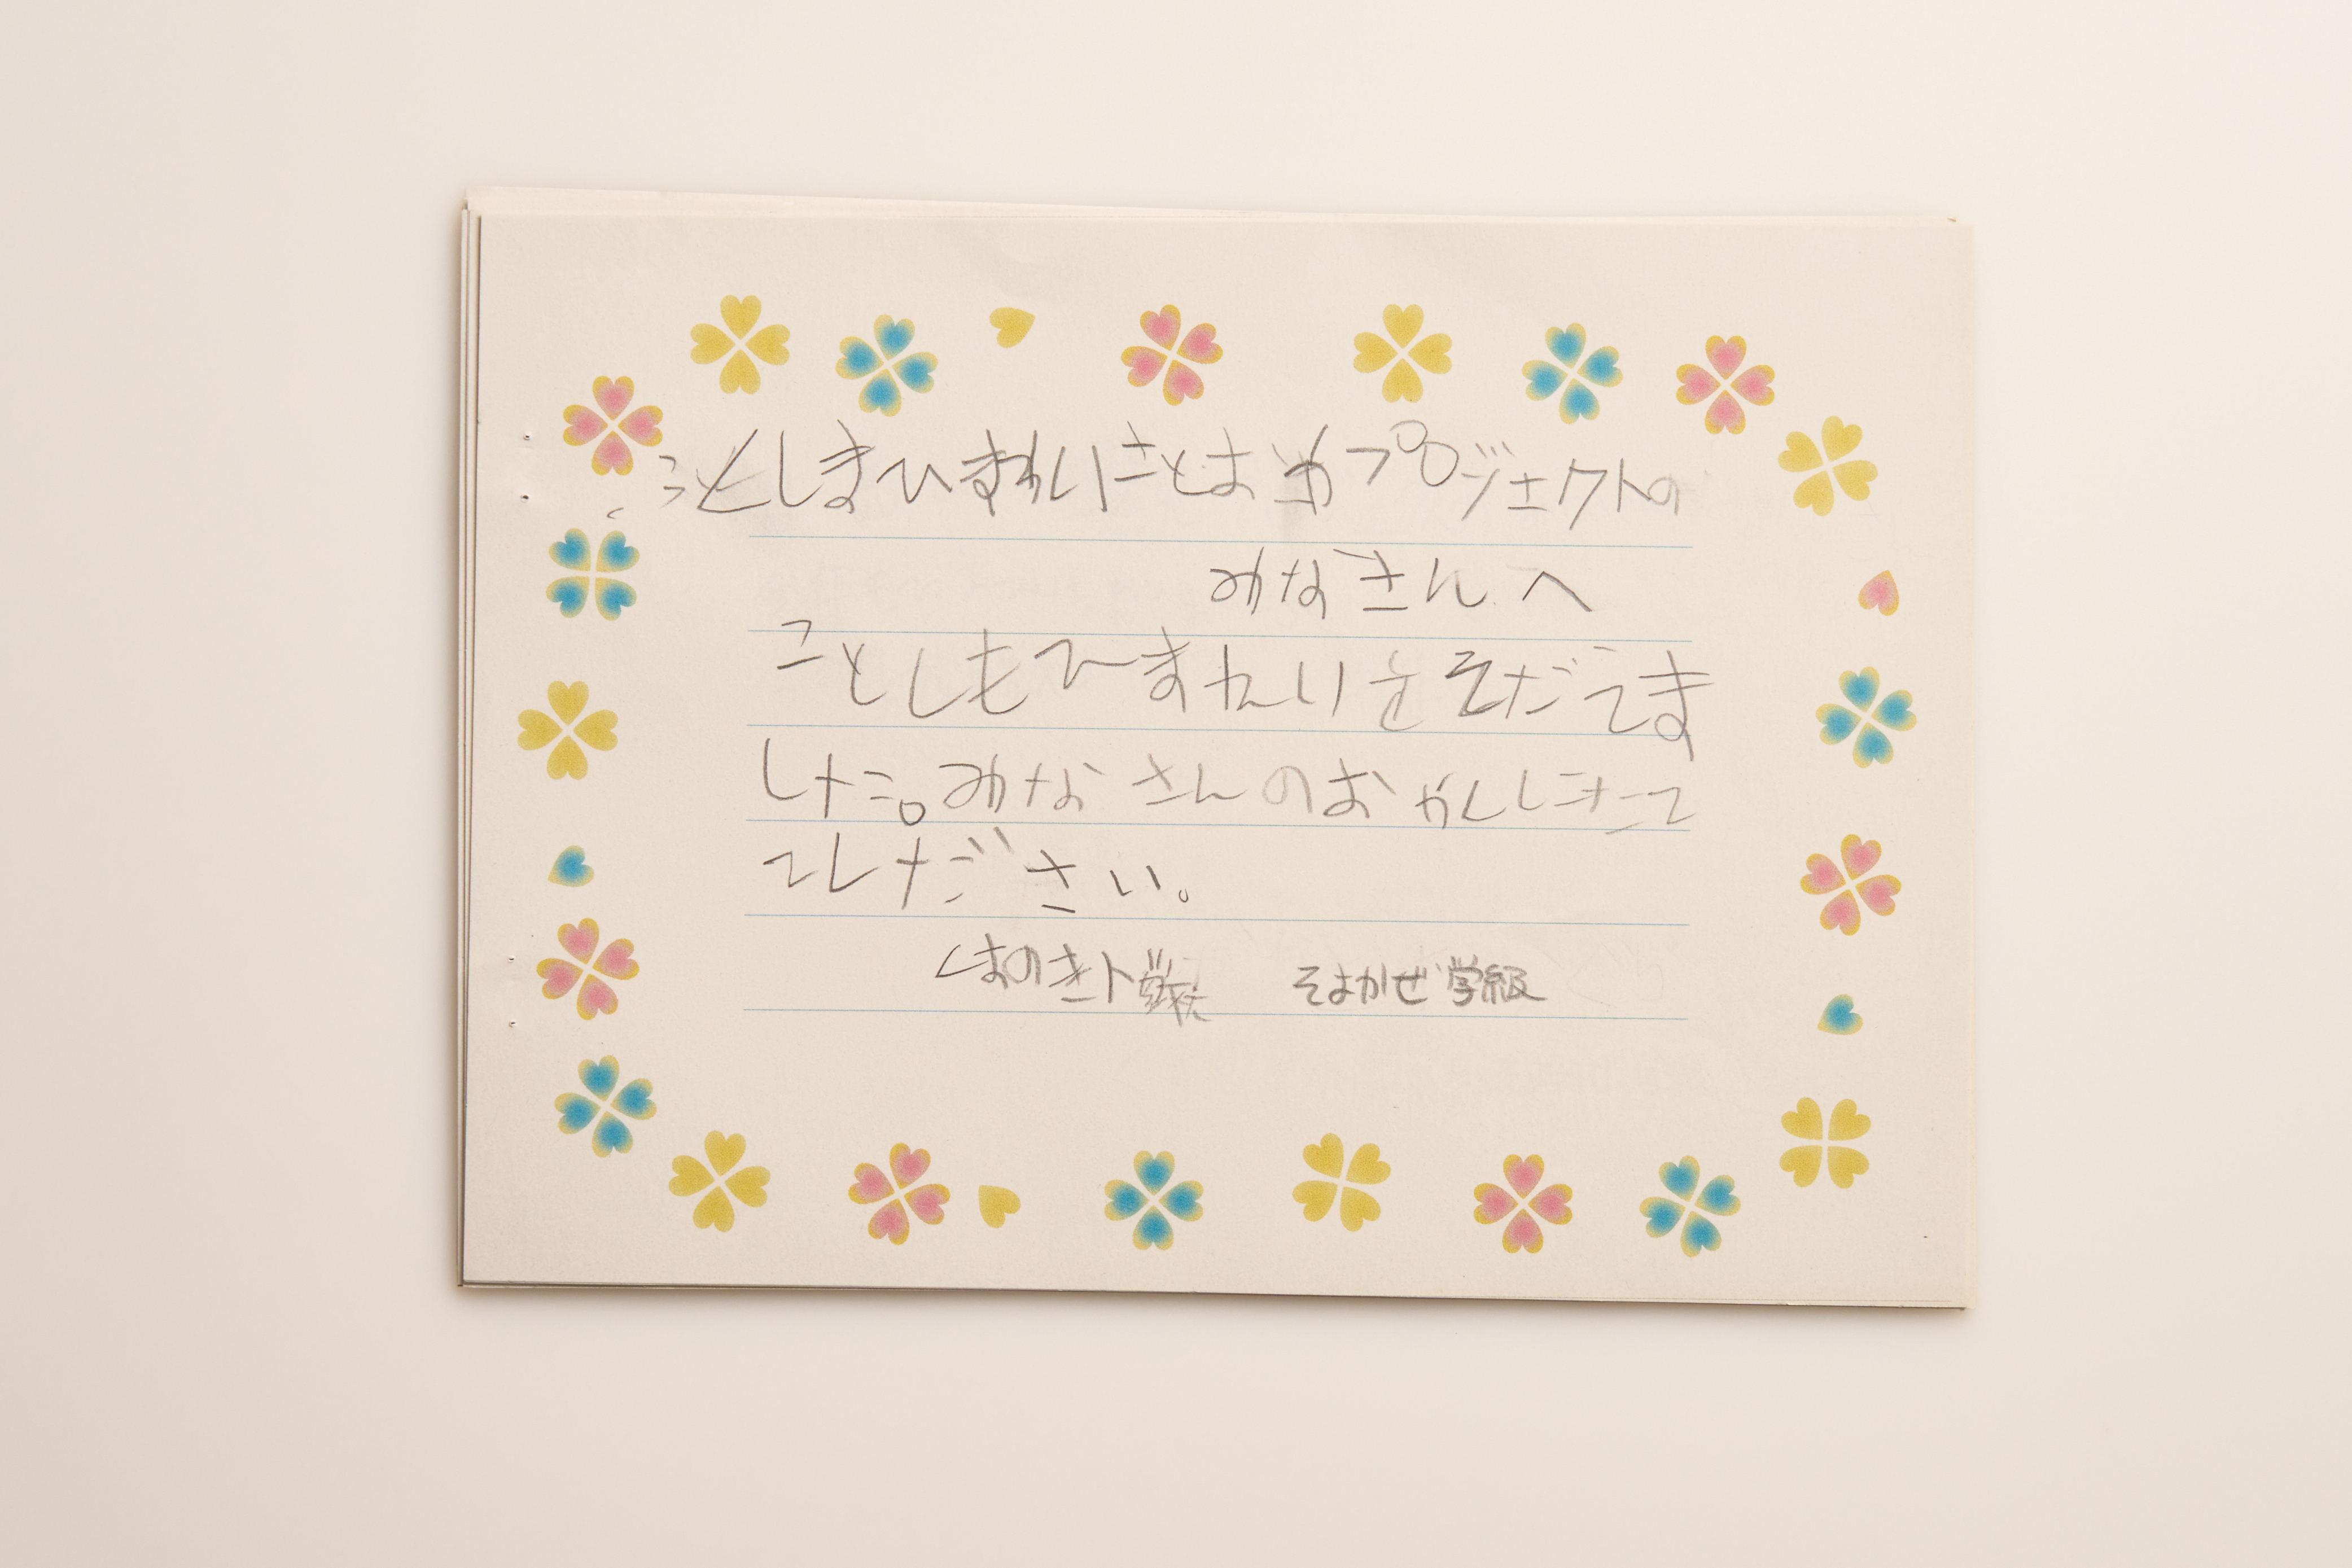 ことしまひまわりことおかプロジェクトの
みなさんへ
ことしもひまわりをそだてま
した。みなさんのおやくにたて
てしださい。
くまのき小学校 そよかぜ学級